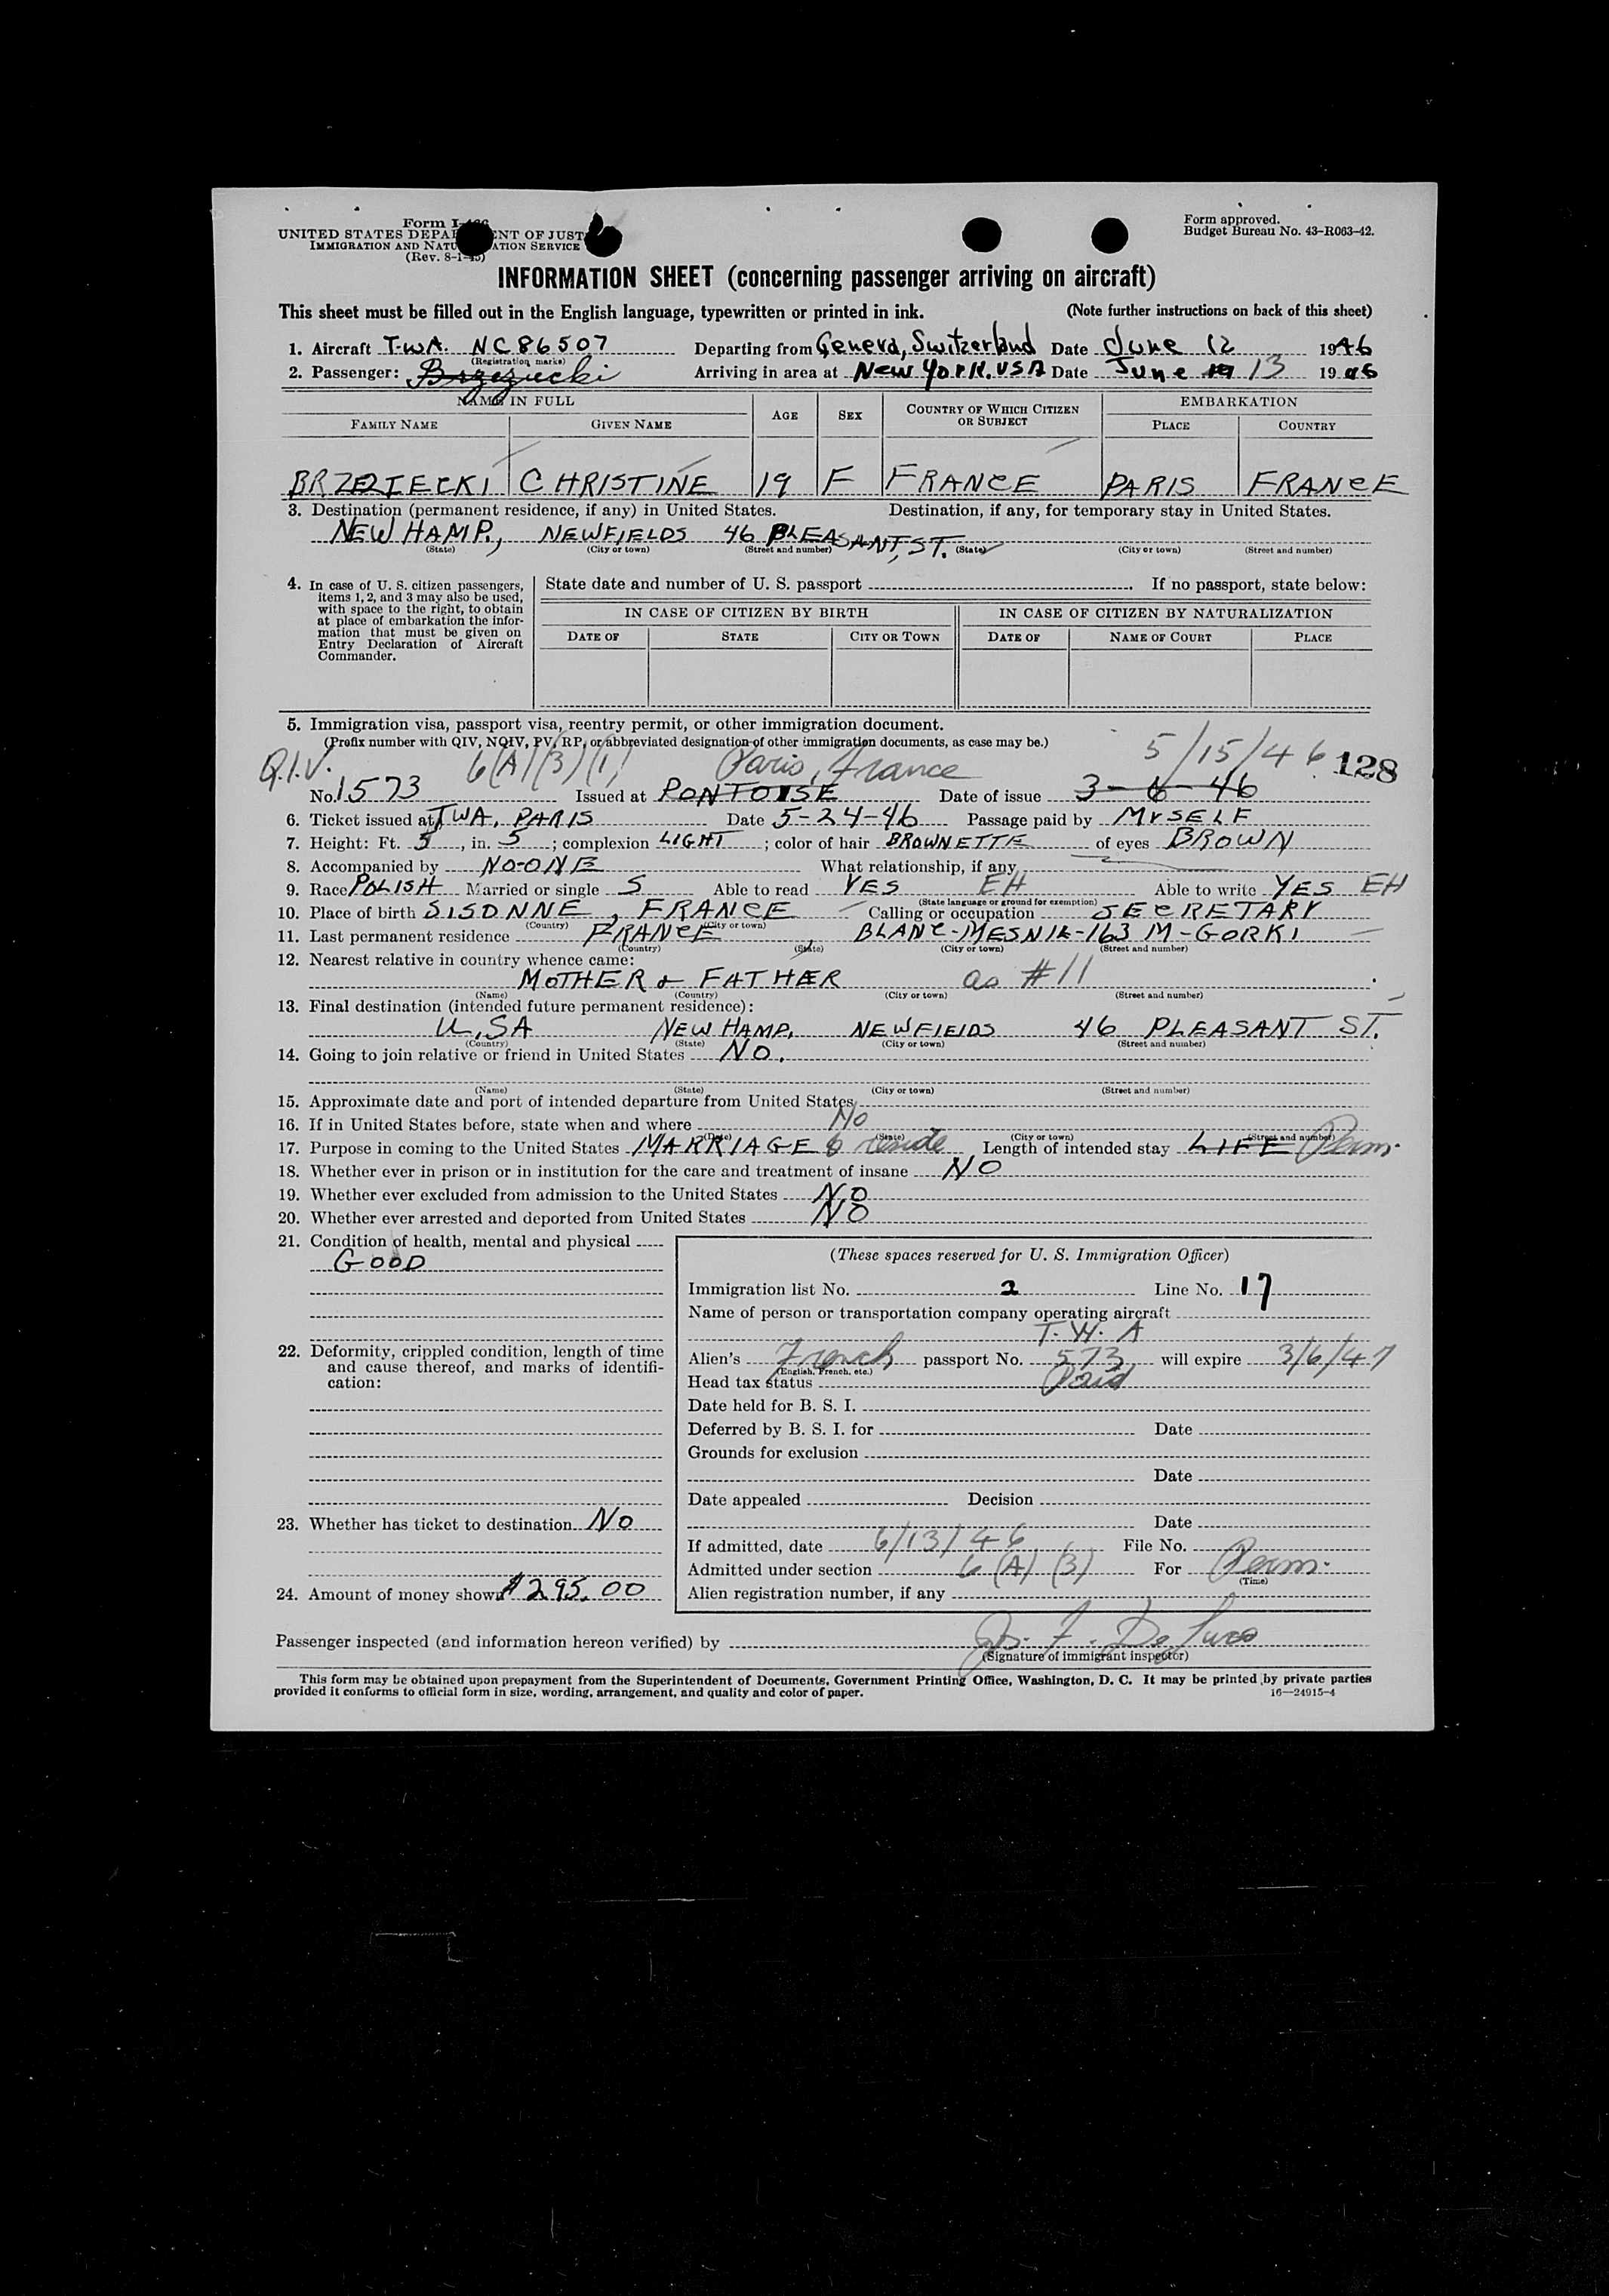 Form I-466
UNITED STATES DEPARTMENT OF JUSTICE
IMMIGRATION AND NATURALIZATION SERVICE
(Rev. 8-1-45)
Form approved.
Budget Bureau No. 43-R063-42.
INFORMATION SHEET (concerning passenger arriving on aircraft)
This sheet must be filled out in the English language, typewritten or printed in ink. (Note further instructions on back of this sheet)
1. Aircraft T.W.A. NC86507 Departing from Geneva, Switzerland Date June 12 1946
(Registration marks)
2. Passenger: Arriving in area at New York. USA Date June 13 1946
NAME IN FULL AGE SEX COUNTRY OF WHICH CITIZEN OR SUBJECT EMBARKATION
FAMILY NAME GIVEN NAME PLACE COUNTRY
BRZEZIECKI CHRISTINE 19 F FRANCE PARIS FRANCE
3. Destination (permanent residence, if any) in United States. Destination, if any, for temporary stay in United States.
NEW HAMP., NEWFIELDS 46 PLEASANT, ST.
(State) (City or town) (Street and number) (State) (City or town) (Street and number)
4. In case of U. S. citizen passengers, items 1, 2, and 3 may also be used, with space to the right, to obtain at place of embarkation the information that must be given on Entry Declaration of Aircraft Commander.
State date and number of U. S. passport If no passport, state below:
IN CASE OF CITIZEN BY BIRTH IN CASE OF CITIZEN BY NATURALIZATION
DATE OF STATE CITY OR TOWN DATE OF NAME OF COURT PLACE
5. Immigration visa, passport visa, reentry permit, or other immigration document.
(Prefix number with QIV, NQIV, PV, RP, or abbreviated designation of other immigration documents, as case may be.)
Q.I.V. 6(A)(3)(1) Paris, France 5/15/46 128
No. 1573 Issued at PONTOISE Date of issue 3-6-46
6. Ticket issued at TWA, PARIS Date 5-24-46 Passage paid by MYSELF
7. Height: Ft. 5, in. 5; complexion LIGHT; color of hair BROWNETTE of eyes BROWN
8. Accompanied by NO-ONE What relationship, if any
9. Race POLISH Married or single S Able to read YES EH Able to write YES EH
(State language or ground for exemption)
10. Place of birth SISONNE, FRANCE Calling or occupation SECRETARY
(Country) (City or town)
11. Last permanent residence FRANCE BLANC-MESNIL-163 M-GORKI
(Country) (State) (City or town) (Street and number)
12. Nearest relative in country whence came:
MOTHER & FATHER as #11
(Name) (Country) (City or town) (Street and number)
13. Final destination (intended future permanent residence):
U.SA NEW HAMP. NEWFIELDS 46 PLEASANT ST.
(Country) (State) (City or town) (Street and number)
14. Going to join relative or friend in United States NO.
(Name) (State) (City or town) (Street and number)
15. Approximate date and port of intended departure from United States
16. If in United States before, state when and where No
(Date) (State) (City or town) (Street and number)
17. Purpose in coming to the United States MARRIAGE & reside Length of intended stay LIFE Perm.
18. Whether ever in prison or in institution for the care and treatment of insane NO
19. Whether ever excluded from admission to the United States NO
20. Whether ever arrested and deported from United States NO
21. Condition of health, mental and physical
GOOD
22. Deformity, crippled condition, length of time and cause thereof, and marks of identification:
23. Whether has ticket to destination NO
24. Amount of money shown $295.00
(These spaces reserved for U. S. Immigration Officer)
Immigration list No. 2 Line No. 17
Name of person or transportation company operating aircraft
T.W.A
Alien's French passport No. 573 will expire 3/6/47
(English, French, etc.)
Head tax status Paid
Date held for B. S. I.
Deferred by B. S. I. for Date
Grounds for exclusion
Date
Date appealed Decision
Date
If admitted, date 6/13/46 File No.
Admitted under section 6(A)(3) For Perm.
(Time)
Alien registration number, if any
Passenger inspected (and information hereon verified) by
(Signature of immigrant inspector)
This form may be obtained upon prepayment from the Superintendent of Documents, Government Printing Office, Washington, D. C. It may be printed by private parties
provided it conforms to official form in size, wording, arrangement, and quality and color of paper. 16—24915-4